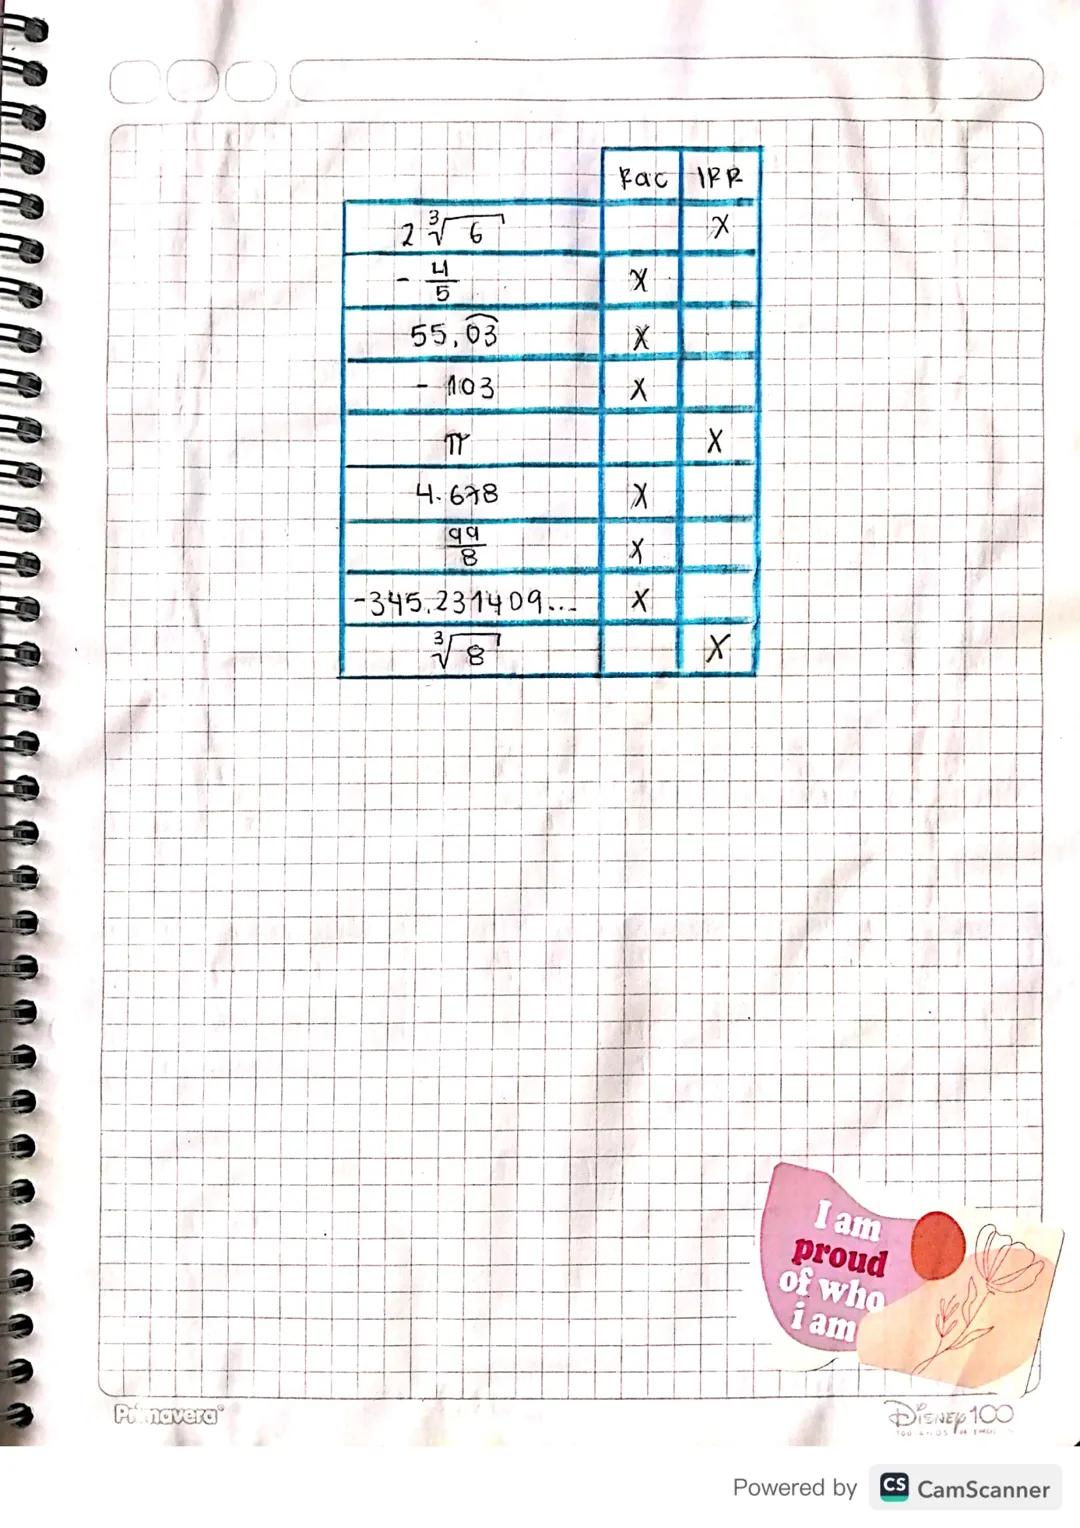 Rac IRR
2 ∛6 X
- 4/5 X
55,0͡3 X
- 103 X
π X
4.678 X
99/8 X
-345,231409... X
∛8 X
I am
proud
of who
i am
Primavera
DISNEY 100
Powered by CS CamScanner